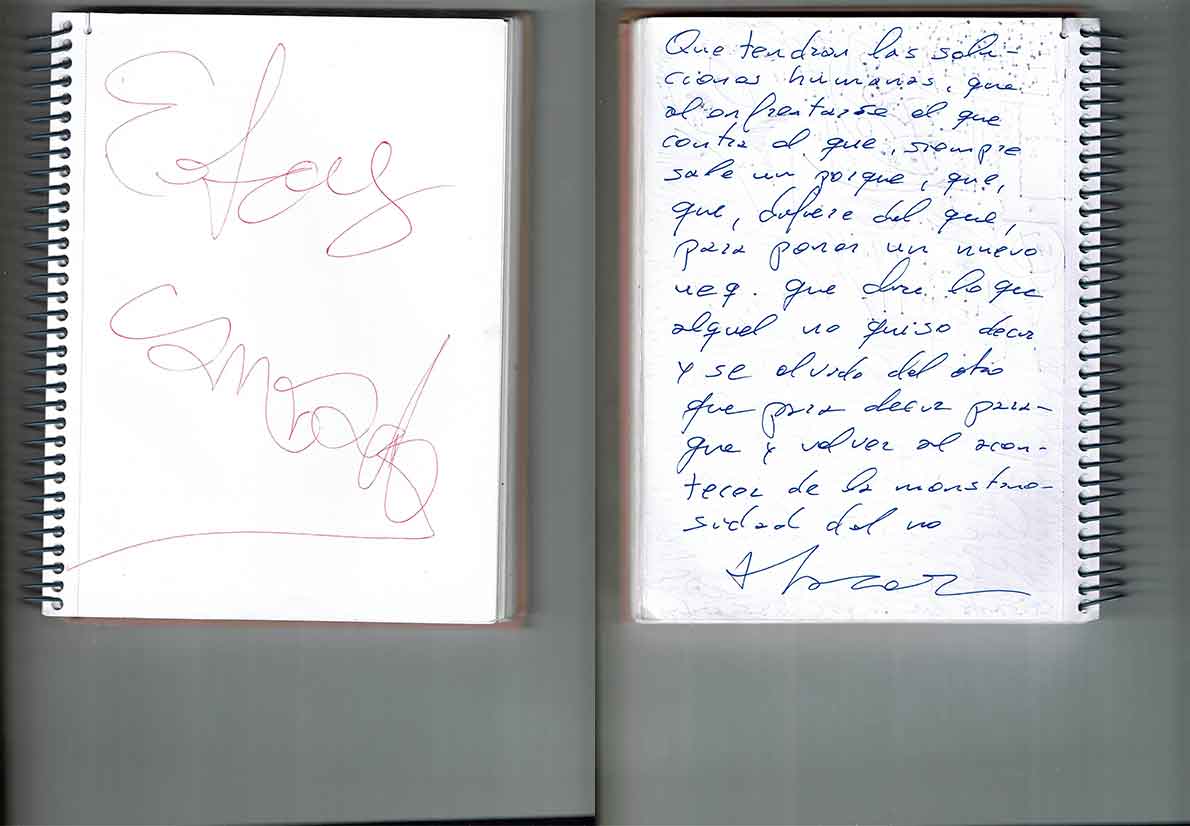 Estas
Que tendran las solu-
ciones humanas, que
al enfrentarse el que
contra el que, siempre
sale un porque, que,
que, difiere del que,
para poner un nuevo
ueq. que dice lo que
alquel no quiso decir
y se olvido del otro
que para decir para-
que y volver al acon-
tecer de la monstruo-
sidad del no